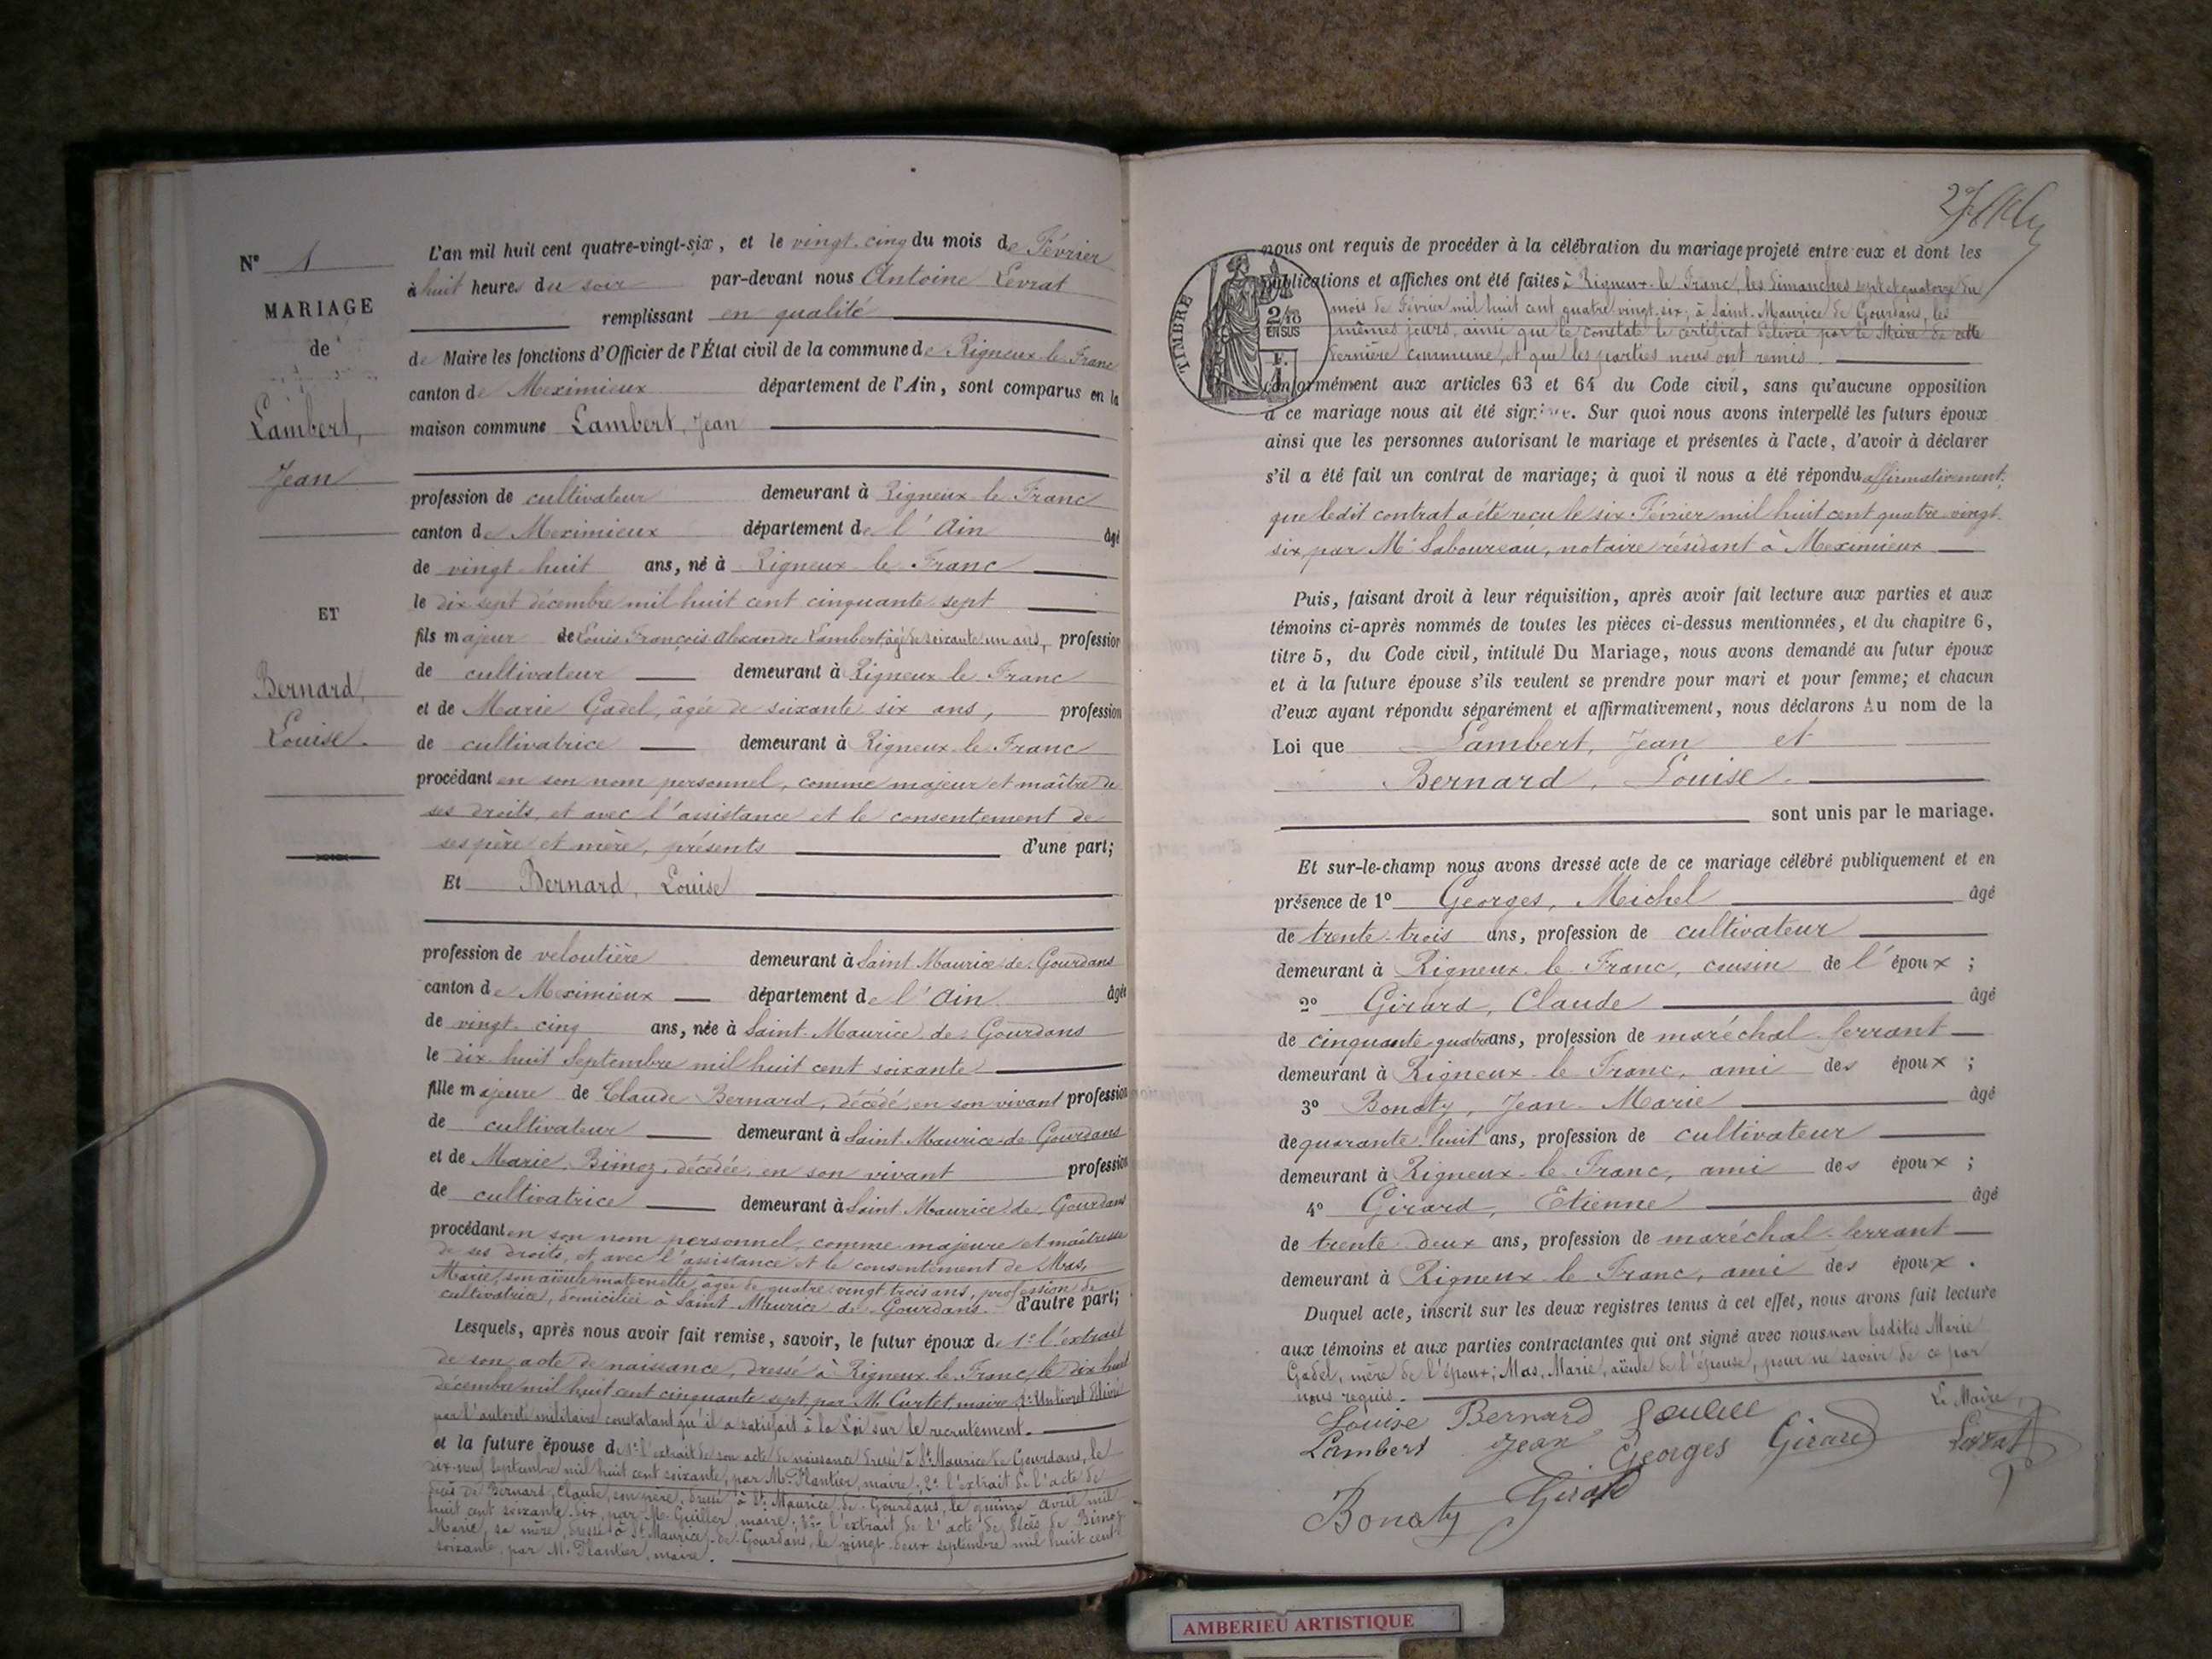 N° 1
MARIAGE
de
Lambert,
Jean
ET
Bernard,
Louise.
L'an mil huit cent quatre-vingt-six, et le vingt-cinq du mois de Février
à huit heures du soir par-devant nous Antoine Levrat
remplissant en qualité
de Maire les fonctions d'Officier de l'État civil de la commune de Rigneux-le-Franc
canton de Meximieux département de l'Ain, sont comparus en la
maison commune Lambert, Jean
profession de cultivateur demeurant à Rigneux-le-Franc
canton de Meximieux département de l'Ain âgé
de vingt-huit ans, né à Rigneux-le-Franc
le dix-sept décembre mil huit cent cinquante-sept
fils majeur de Louis François Alexandre Lambert, âgé de soixante-un ans, profession
de cultivateur demeurant à Rigneux-le-Franc
et de Marie Gadel, âgée de soixante-six ans, profession
de cultivatrice demeurant à Rigneux-le-Franc
procédant en son nom personnel, comme majeur et maître de
ses droits, et avec l'assistance et le consentement de
ses père et mère, présents d'une part;
Et Bernard, Louise
profession de veloutière demeurant à Saint-Maurice-de-Gourdans
canton de Meximieux département de l'Ain âgée
de vingt-cinq ans, née à Saint-Maurice-de-Gourdans
le dix-huit Septembre mil huit cent soixante
fille majeure de Claude Bernard, décédé, en son vivant profession
de cultivateur demeurant à Saint-Maurice-de-Gourdans
et de Marie, décédée, en son vivant profession
de cultivatrice demeurant à Saint-Maurice-de-Gourdans
procédant en son nom personnel, comme majeure et maîtresse
de ses droits, et avec l'assistance et le consentement de Mas,
Marie, son aïeule maternelle, âgée de quatre-vingt-trois ans, profession de
cultivatrice, domiciliée à Saint-Maurice-de-Gourdans. d'autre part;
Lesquels, après nous avoir fait remise, savoir, le futur époux de 1° l'extrait
de son acte de naissance, dressé à Rigneux-le-Franc, le dix-huit
décembre mil huit cent cinquante-sept, par M. Curtet, maire; 2° Un livret délivré
par l'autorité militaire constatant qu'il a satisfait à la Loi sur le recrutement.
et la future épouse de 1° l'extrait de son acte de naissance dressé à St Maurice de Gourdans, le
dix-neuf Septembre mil huit cent soixante, par M. Plantier, maire; 2° l'extrait de l'acte de
décès de Bernard, Claude, son père, dressé à St Maurice-de-Gourdans, le quinze avril mil
huit cent soixante-dix, par M. Guiller, maire; 3° l'extrait de l'acte de décès de
Marie, sa mère, dressé à St Maurice-de-Gourdans, le vingt-deux septembre mil huit cent
soixante, par M. Plantier, maire.
TIMBRE
2/10
EN SUS
nous ont requis de procéder à la célébration du mariage projeté entre eux et dont les
publications et affiches ont été faites à Rigneux-le-Franc, les Dimanches sept et quatorze du
mois de Février mil huit cent quatre-vingt-six; à Saint-Maurice de Gourdans, les
mêmes jours, ainsi que le constate le certificat délivré par le Maire de cette
dernière commune, et que les parties nous ont remis.
conformément aux articles 63 et 64 du Code civil, sans qu'aucune opposition
à ce mariage nous ait été signifiée. Sur quoi nous avons interpellé les futurs époux
ainsi que les personnes autorisant le mariage et présentes à l'acte, d'avoir à déclarer
s'il a été fait un contrat de mariage; à quoi il nous a été répondu affirmativement,
que ledit contrat a été reçu le six Février mil huit cent quatre-vingt-
six, par Me Laboureau, notaire résidant à Meximieux
Puis, faisant droit à leur réquisition, après avoir fait lecture aux parties et aux
témoins ci-après nommés de toutes les pièces ci-dessus mentionnées, et du chapitre 6,
titre 5, du Code civil, intitulé Du Mariage, nous avons demandé au futur époux
et à la future épouse s'ils veulent se prendre pour mari et pour femme; et chacun
d'eux ayant répondu séparément et affirmativement, nous déclarons Au nom de la
Loi que Lambert, Jean et
Bernard, Louise.
sont unis par le mariage.
Et sur-le-champ nous avons dressé acte de ce mariage célébré publiquement et en
présence de 1° Georges, Michel âgé
de trente-trois ans, profession de cultivateur
demeurant à Rigneux-le-Franc, cousin de l'époux;
2° Girard, Claude âgé
de cinquante-quatre ans, profession de maréchal-ferrant
demeurant à Rigneux-le-Franc, ami des époux;
3° Bonaty, Jean-Marie âgé
de quarante-huit ans, profession de cultivateur
demeurant à Rigneux-le-Franc, ami des époux;
4° Girard, Etienne âgé
de trente-deux ans, profession de maréchal-ferrant
demeurant à Rigneux-le-Franc, ami des époux.
Duquel acte, inscrit sur les deux registres tenus à cet effet, nous avons fait lecture
aux témoins et aux parties contractantes qui ont signé avec nous non lesdites Marie
Gadel, mère de l'époux; Mas, Marie, aïeule de l'épouse, pour ne savoir de ce par
nous requis.
Le Maire,
Louise Bernard
Lambert Jean Georges Girard Levrat
Bonaty Girard
AMBERIEU ARTISTIQUE